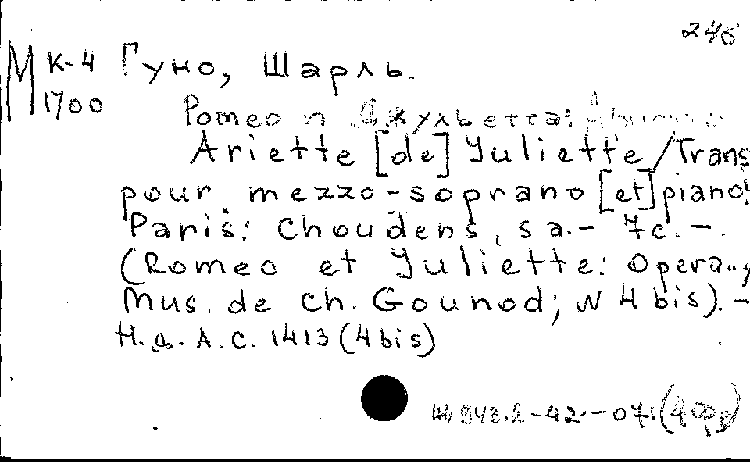 246
М К-4 Гуно, Шарль.
1700
Ромео и Джульетта:
Ariette [de] Yuliette / Trans
pour mezzo-soprano [et] piano.
Paris: Choudens, s a.- 7c. -.
(Romeo et Yuliette: Opera..,
Mus. de Ch. Gounod; N 4 bis). -
Н.д. А.С. 1413 (4 bis)